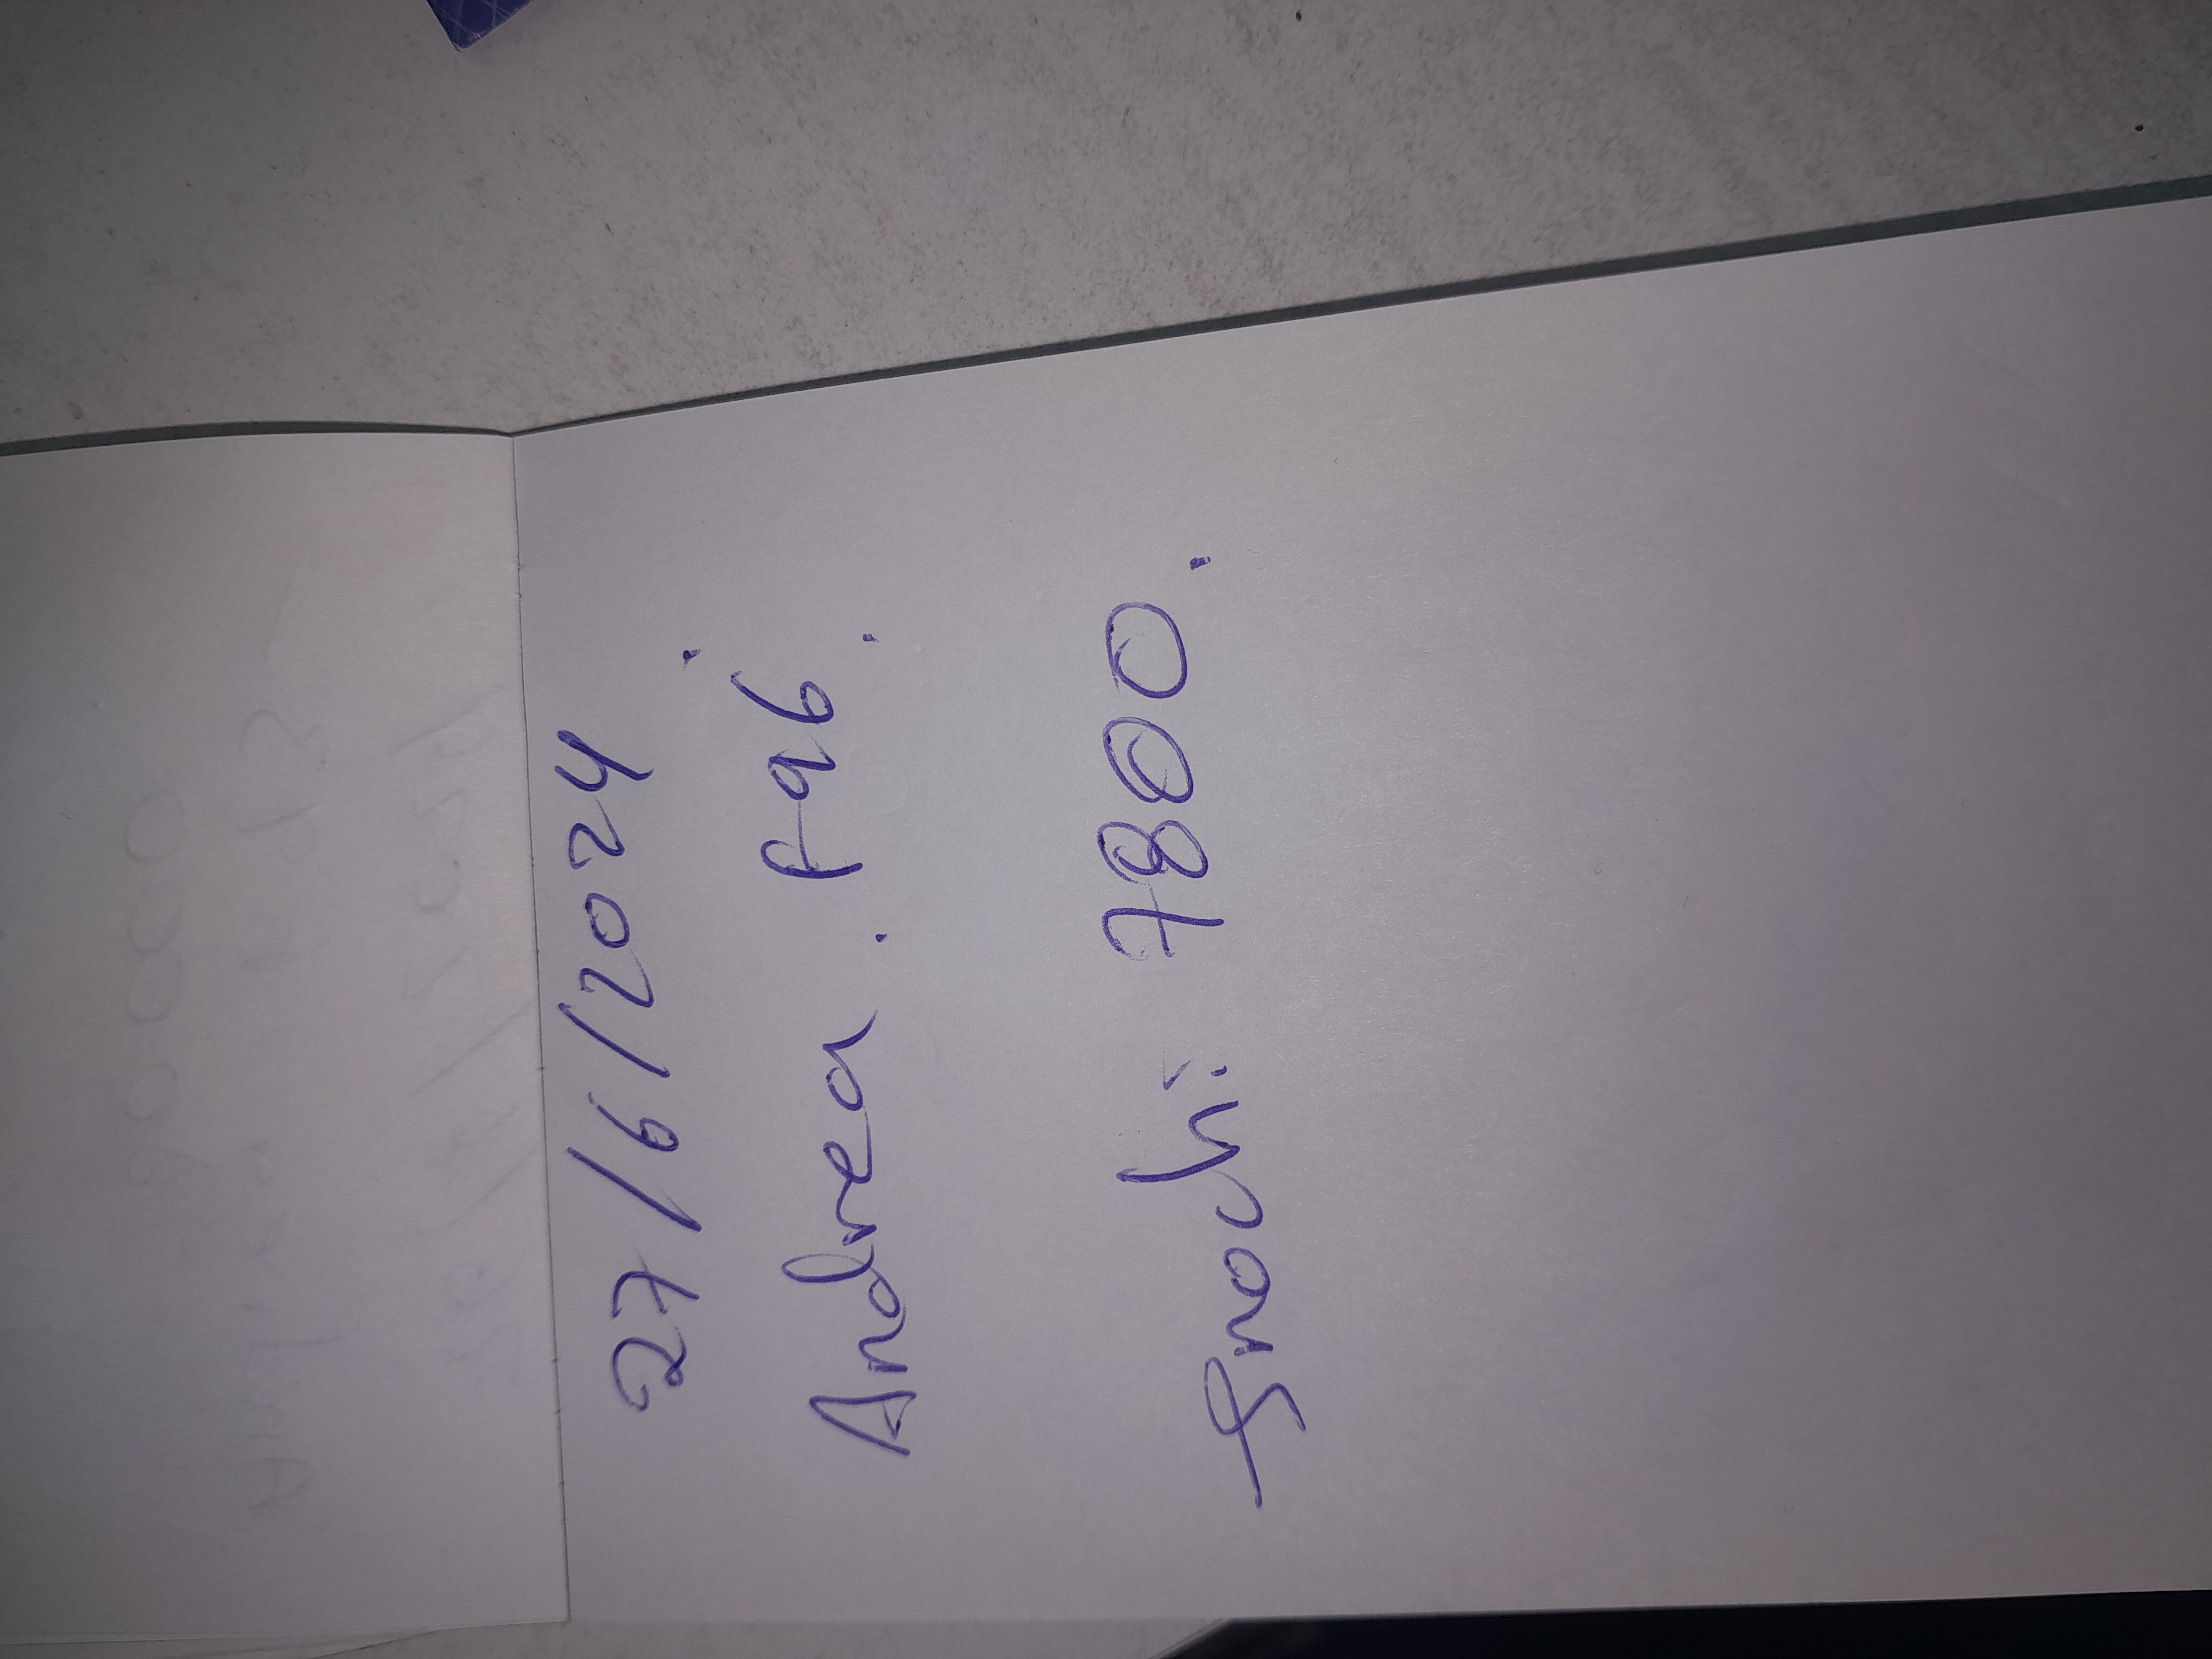 27/6/2024
Andrea. F96.
Enoch: 7800.